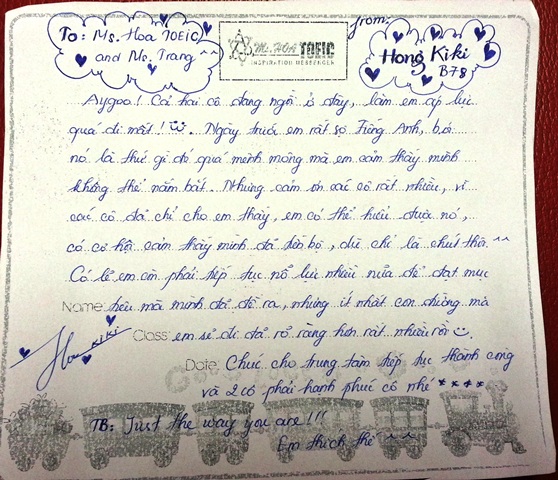 To: Ms. Hoa TOEIC
and Ms. Trang ^^
Ms. HOA TOEIC
INSPIRATION MESSENGER
from:
Hong Kiki
B78
Aygoo! Cả hai cô đang ngồi ở đây, làm em áp lực
quá đi mất! Ngày trước em rất sợ Tiếng Anh, bởi
nó là thứ gì đó quá mênh mông mà em cảm thấy mình
không thể nắm bắt. Nhưng cảm ơn các cô rất nhiều, vì
các cô đã chỉ cho em thấy, em có thể hiểu được nó,
có cơ hội cảm thấy mình đã tiến bộ, dù chỉ là chút thôi. ^^
Có lẽ em còn phải tiếp tục nỗ lực nhiều nữa để đạt mục
Name: tiêu mà mình đã đề ra, nhưng ít nhất con đường mà
Class: em sẽ đi đã rõ ràng hơn rất nhiều rồi
kiki
Date: Chúc cho trung tâm tiếp tục thành công
và 2 cô phải hạnh phúc cơ nhé ****
TB: Just the way you are!!!
Em thích thế ^^